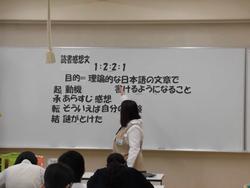 読書感想文
1:2:2:1
目的=理論的な日本語の文章で
起 動機 書けるようになること
承 あらすじ 感想
転 そういえば自分の
結 謎がとけた